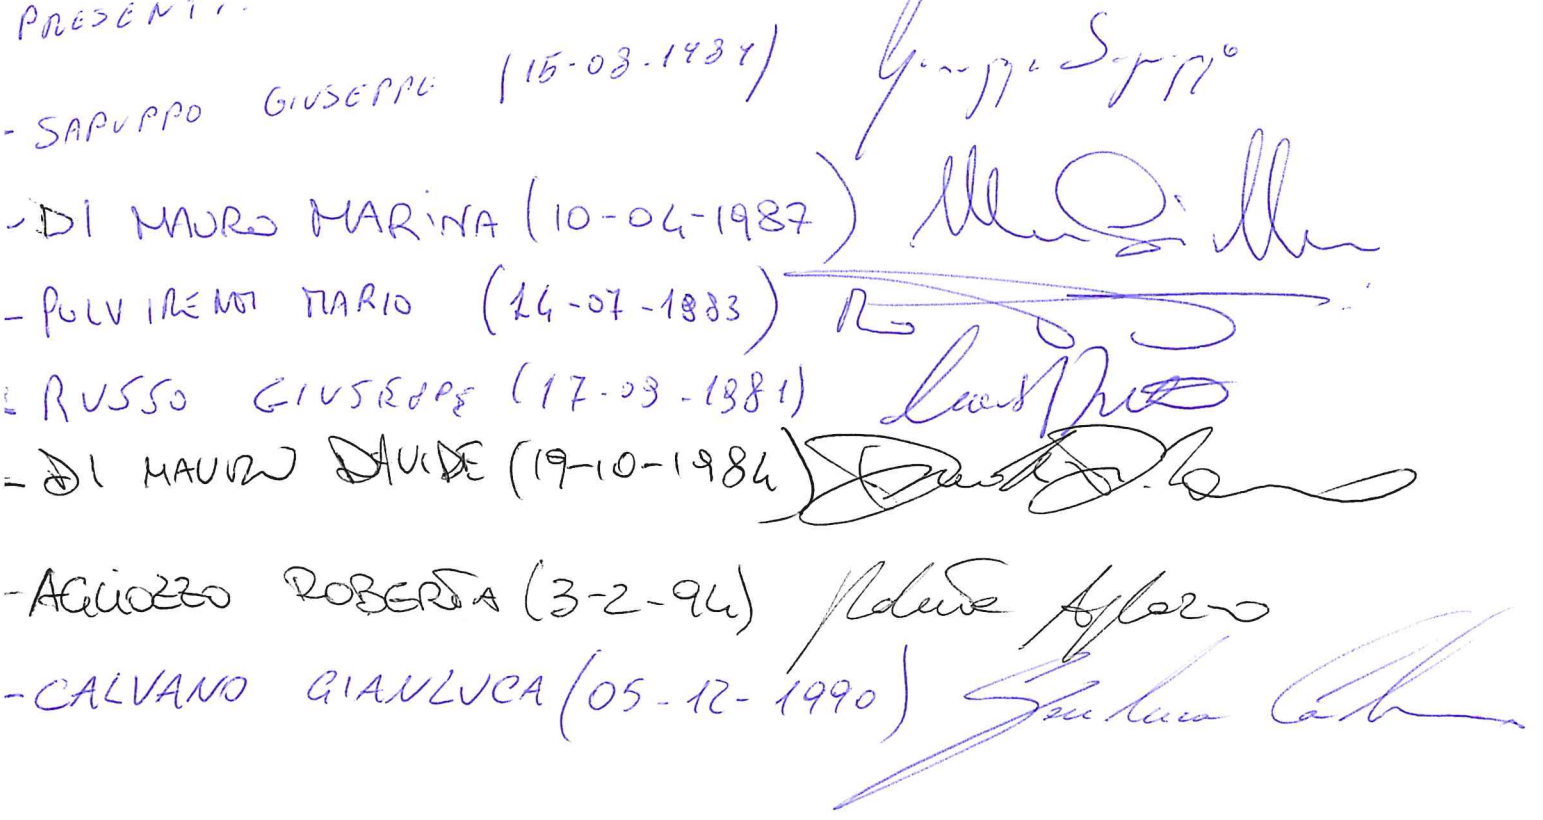 PRESENTI:
- SAPUPPO GIUSEPPE Giuseppe Sapuppo
- DI MAURO MARINA (10-04-1987)
- PULVIRENTI MARIO (14-07-1983)
- RUSSO GIUSEPPE (17-09-1981)
- DI MAURO DAVIDE (19-10-1984)
- AGLIOZZO ROBERTA (3-2-94) Roberta Agliozzo
- CALVANO GIANLUCA (05-12-1990) Gianluca